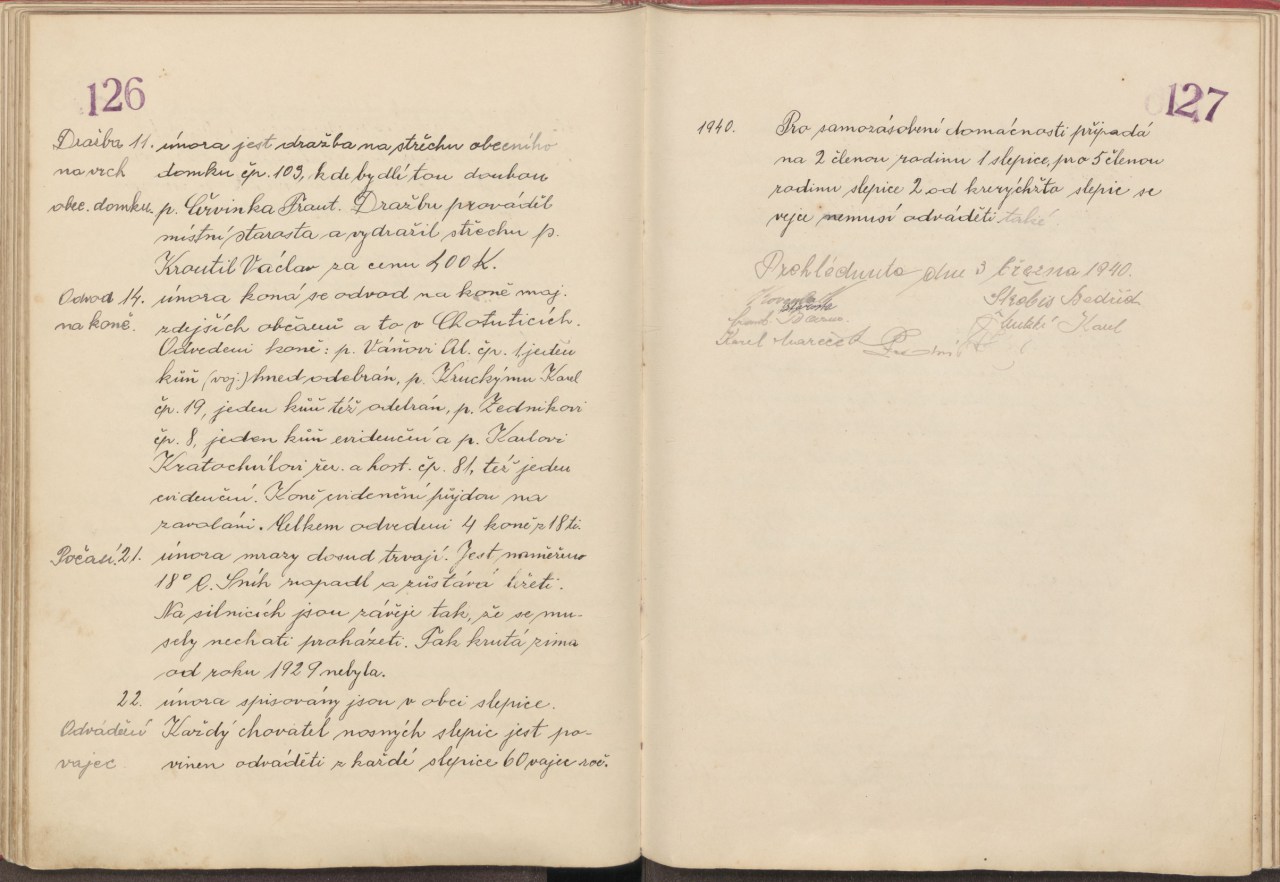 126
Dražba 11. února jest dražba na střechu obecního
na vrch domku čp. 103, kde bydlí tou doubou
obec. domku. p. Červinka Frant. Dražbu prováděl
místní starosta a vydražil střechu p.
Kroutil Václav za cenu 400 K.
Odvod 14. února koná se odvod na koně maj.
na koně. zdejších občanů a to v Chotuticích.
Odvedeni koně: p. Váňovi Al. čp. 1, jeden
kůň (voj.) hned odebrán, p. Kruckýmu Karl
čp. 19, jeden kůň též odebrán, p. Zedníkovi
čp. 8, jeden kůň evidenční a p. Karlovi
Kratochvílovi řez. a host. čp. 81, též jeden
evidenční. Koně evidenční přijdou na
zavolání. Celkem odvedeni 4 koně z 18 ti.
Počasí. 21. února mrazy dosud trvají. Jest naměřeno
18° C. Sníh napadl a zůstává ležeti.
Na silnicích jsou závěje tak, že se mu-
sely nechati proházeti. Tak krutá zima
od roku 1929 nebyla.
22. února spisovány jsou v obci slepice.
Odvádění Každý chovatel nosných slepic jest po-
vajec vinen odváděti z každé slepice 60 vajec roč.
127
1940. Pro samozásobení domácnosti připadá
na 2 členou rodinu 1 slepice, pro 5 členou
rodinu slepice 2 od kterýchžto slepic se
vejce nemusí odváděti také
Prohlédnuto dne 3 března 1940.
Bedřich
Karel
Karel Mareček